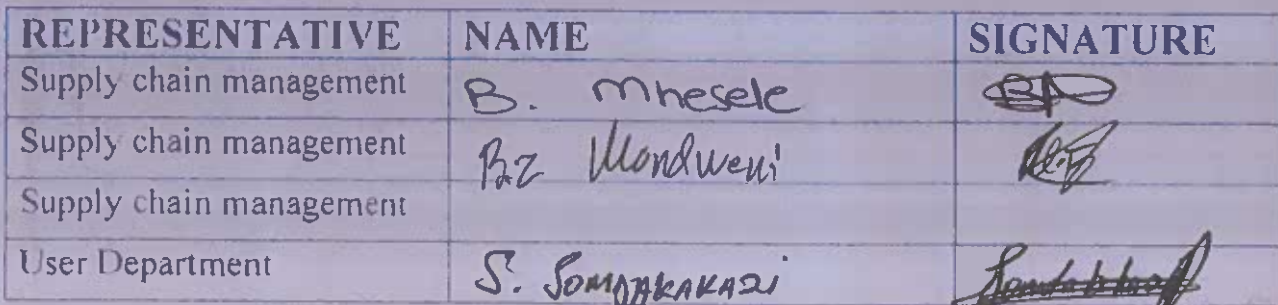 REPRESENTATIVE NAME SIGNATURE
Supply chain management B. Mhesele
Supply chain management BZ Mondweni
Supply chain management
User Department S. SOMDAKAKAZI